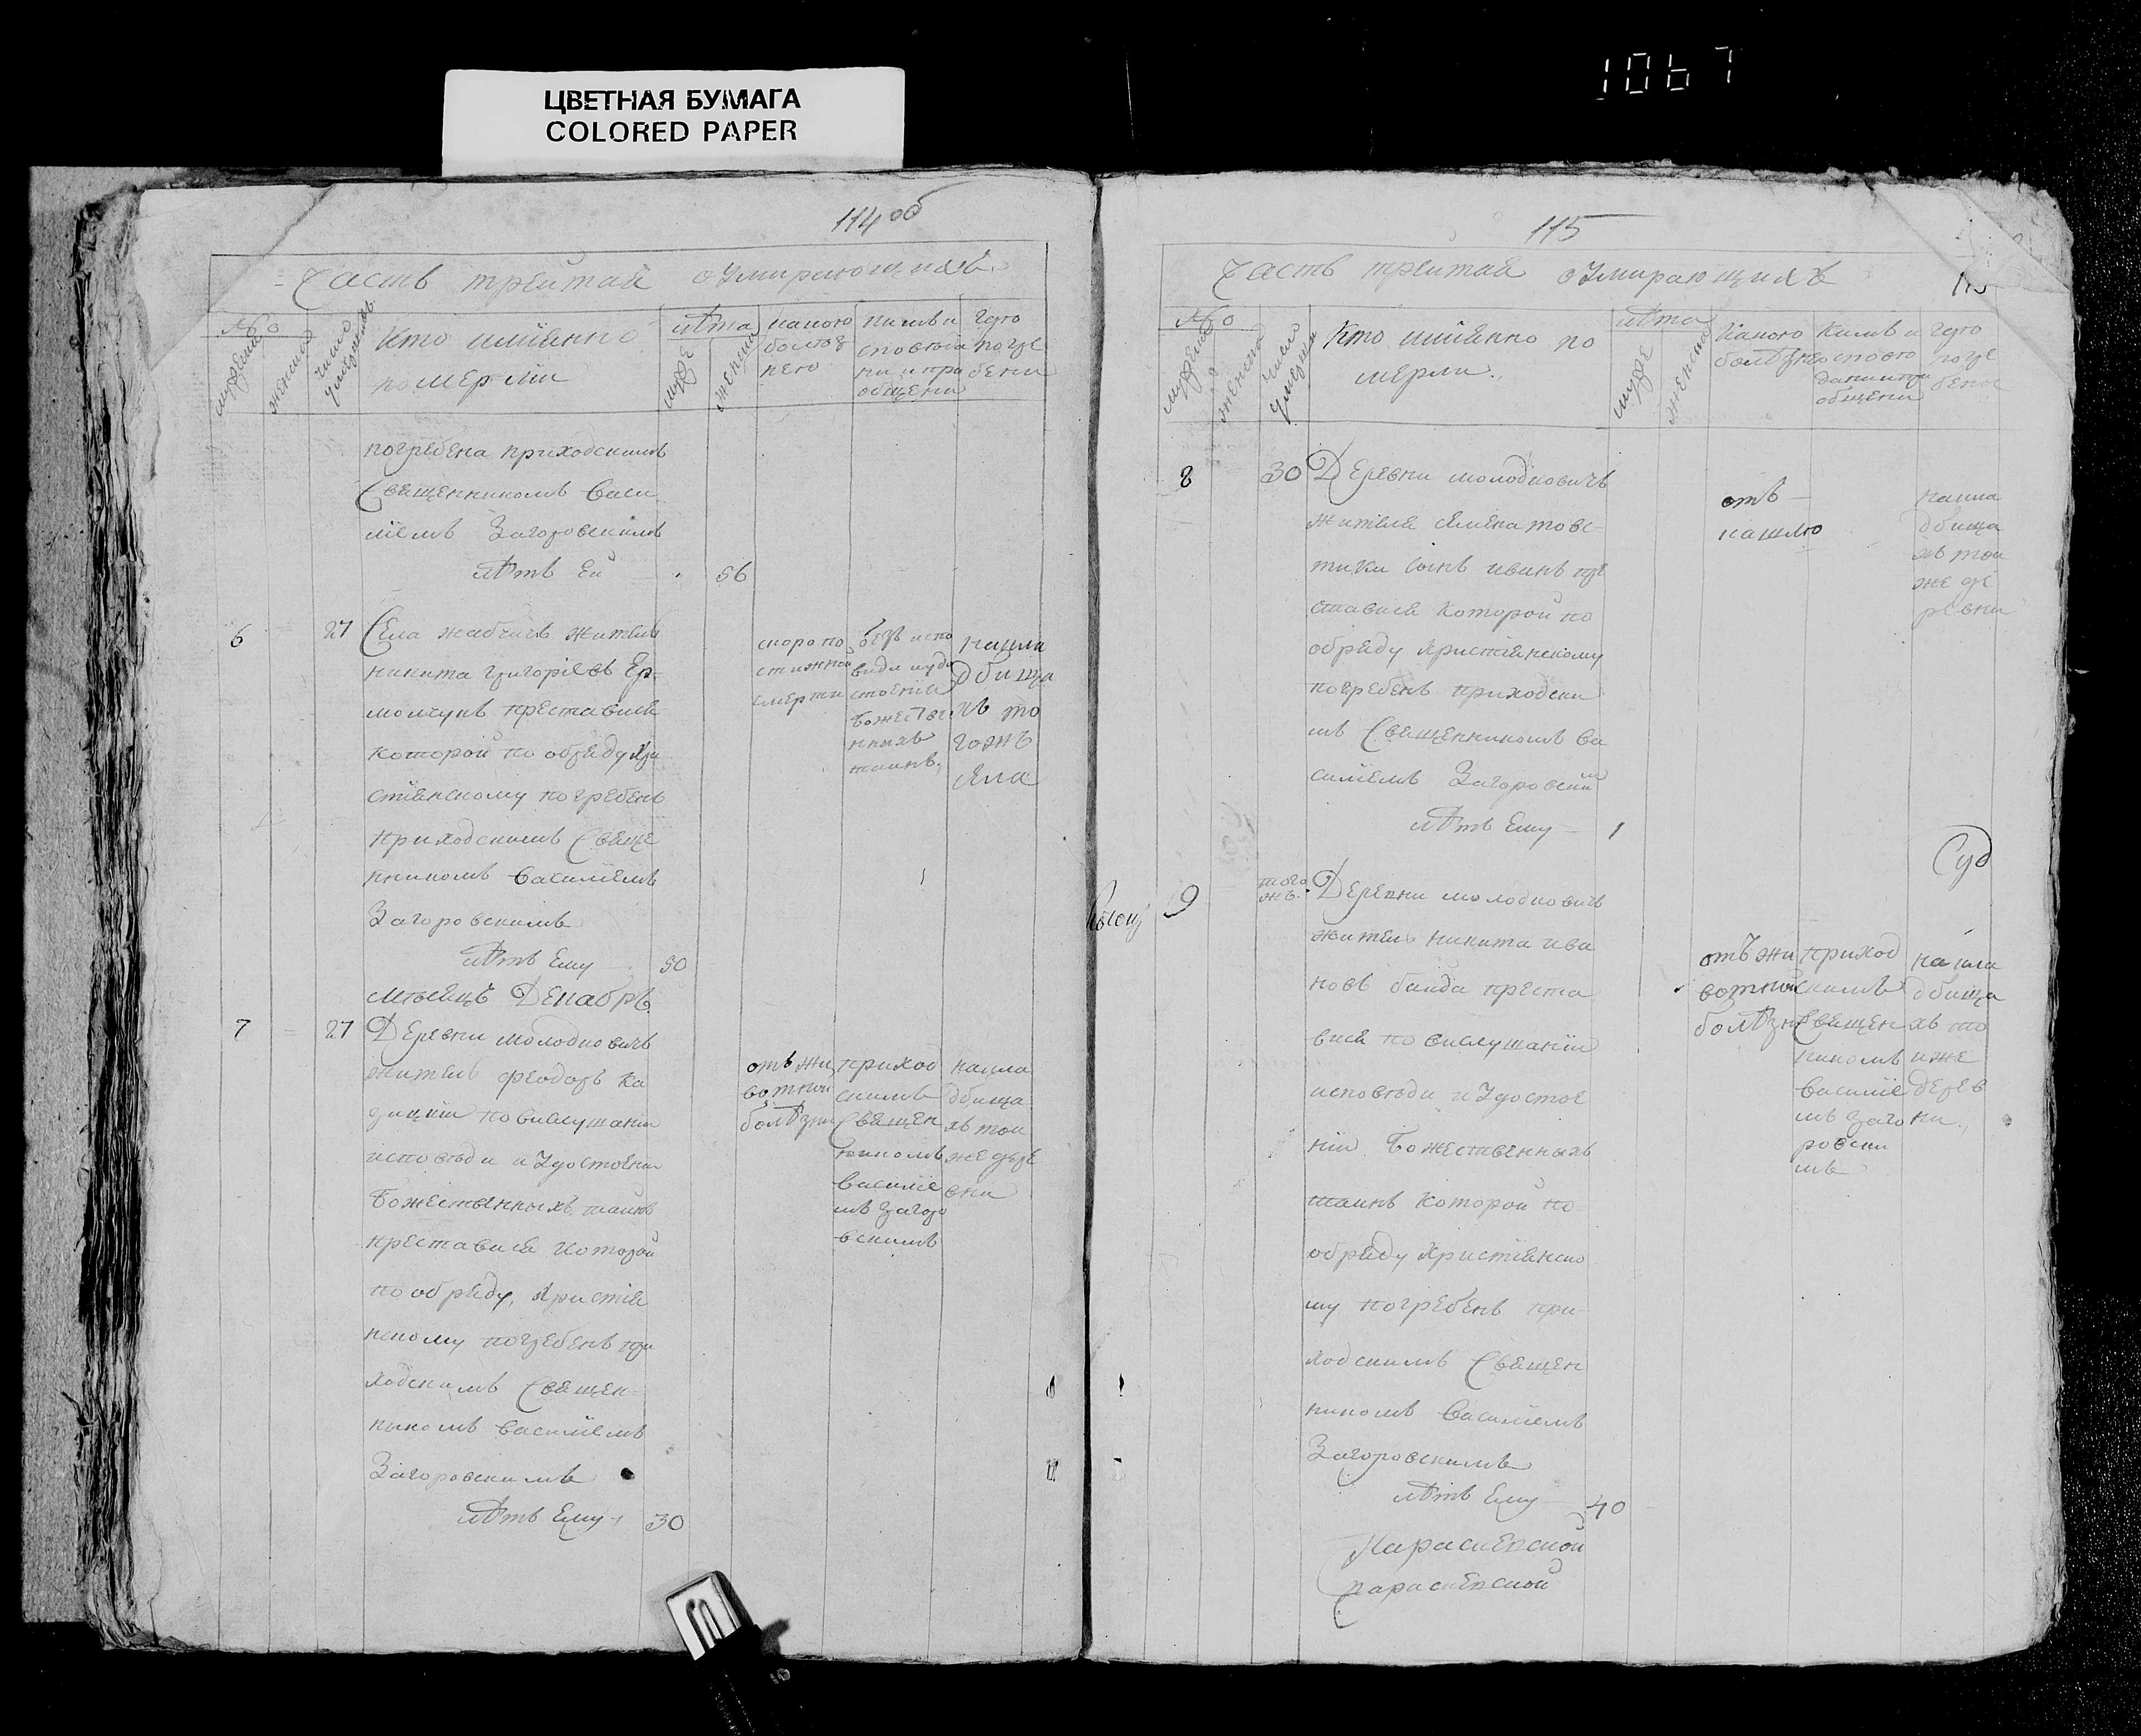 ЦВЕТНАЯ БУМАГА
COLORED PAPER
1067
114 об
Часть третїая о Умирающихъ
№ о
мужеска
женска
число умерш
Кто имїанно
померли
лѣта
муже
женска
какою
болѣз
нею
кимъ и
сповѣда
ни и при
общени
где
погре
бени
погребена приходскимъ
Священникомъ Васи
лїемъ Загоровскимъ
лѣтъ Ей
56
6
27
Села жабчичъ житель
никита григорїевъ Ер-
молчукъ преставися
которой по обряду Хри
стїянскому погребенъ
приходскимъ Свяще
нникомъ Василїемъ
Загоровскимъ
лѣтъ Ему
50
скоропо
стижной
смерти
безъ испо
види и удо
стоения
Божестве
нныхъ
таинъ
на кла
дбища
хъ то
гожъ
села
Мѣсяцъ Декабръ
7
27
Деревни молодковичъ
житель феодоръ Ка
по вислушанїи
исповѣди и Удостоении
Божественныхъ таинъ
преставися которой
по обряду Христїя
нскому погребенъ при
ходскимъ Священ-
ныкомъ василїемъ
Загоровскимъ
лѣтъ Ему
30
отъ жи
вотной
болѣзни
приход
скимъ
Священ
никомъ
василїе
мъ Загоро
вскимъ
на кла
дбища
хъ той
же дере
вни
115
Часть третїая о Умирающихъ
№ о
мужеска
женска
число умерш
Кто имїанно по
мерли
лѣта
муже
женска
какою
болѣзне
кимъ и
сповѣ
дани и при
общени
где
погре
бени
8
30
Деревни молодковичъ
жителя семена товс-
тики сынъ иванъ пре
ставися которой по
обряду христїянскому
погребенъ приходски
мъ Священникомъ ва
силїемъ Загоровским
лѣтъ Ему
1
отъ
кашлю
на кла
дбища
хъ той
же де
ревни
Суд
9
того
жъ
Деревни молодковичъ
житель никита ива
новъ баида преста
вися по вислушанїи
исповѣди и Удостое
нїи Божественныхъ
таинъ которой по
обряду Христїянско
му погребенъ при-
ходскимъ Священ
никомъ василїемъ
Загоровскимъ
лѣтъ Ему
40
отъ жи
вотной
болѣзни
приход
скимъ
Священ
никомъ
василїе
мъ Заго
ровски
мъ
на кла
дбища
хъ то
иже
дерев
ни